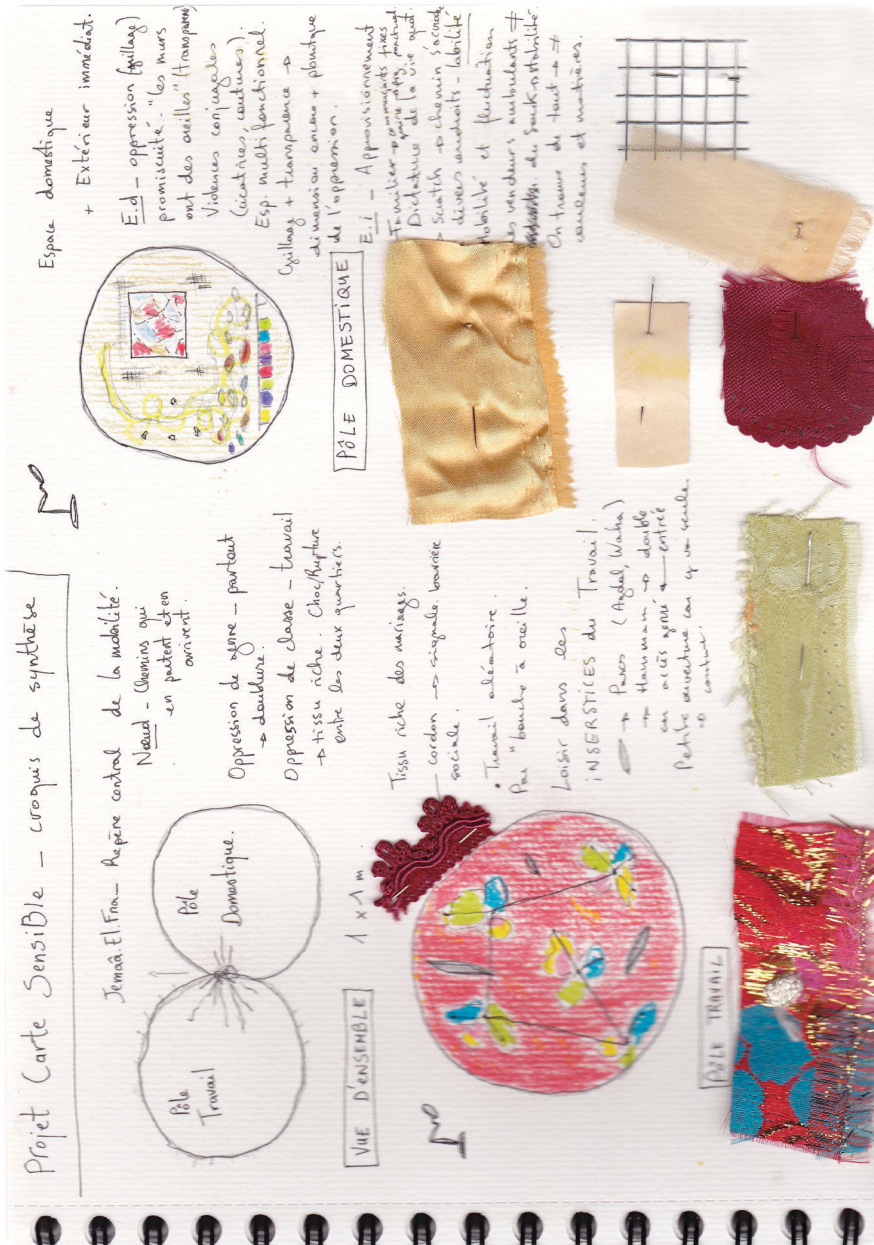 Projet Carte Sensible – croquis de synthèse
Jemaâ.El.Fna – Repère central de la mobilité.
Nœud – Chemins qui
en partent et en
arrivent.
Pôle
Travail
Pôle
Domestique.
Oppression de genre – partout
→ doublure.
Oppression de classe – travail
→ tissu riche. Choc/Rupture
entre les deux quartiers.
VUE D'ENSEMBLE 1 x 1 m.
Tissu riche des mariages.
– cordon → signale barrière
sociale.
• Travail aléatoire.
Par "bouche à oreille.
Loisir dans les
INSERSTICES du Travail.
→ Parcs (Agdal, Waha)
→ Hammam → double
car accès genré ← entrée
Petite ouverture car y va seule.
→ couture.
PÔLE TRAVAIL
Espace domestique
+ Extérieur immédiat.
E.d – oppression (grillage)
promiscuité – "les murs
ont des oreilles" (transparent)
Violences conjugales
(cicatrices, coutures).
Esp. multifonctionnel.
Grillage + transparence →
dimension encore + physique
de l'oppression.
PÔLE DOMESTIQUE
E.i – Approvisionnement
Familier → commerçants fixes
Dictature de la vie quot.
→ Scratch → chemin s'accroche
divers endroits – labilité
Mobilité et fluctuation
des vendeurs ambulants ≠
du souk → stabilité.
On trouve de tout → ≠
couleurs et matières.